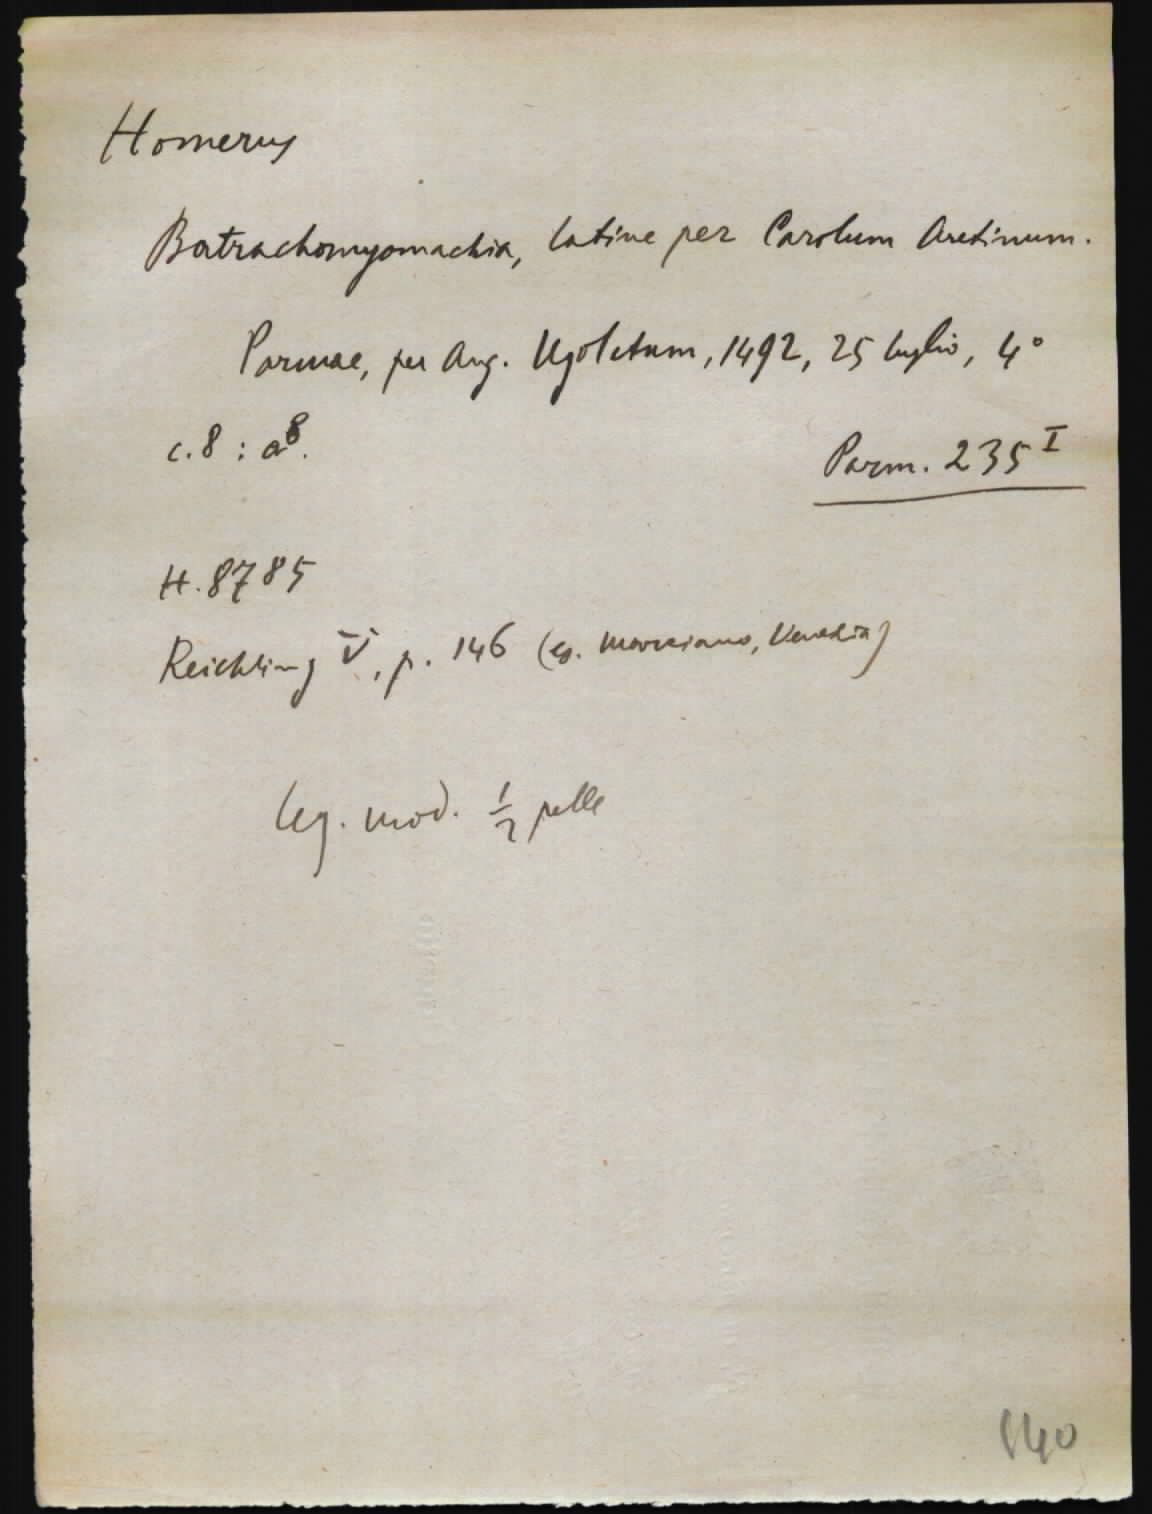 Homerus
Batrachomyomachia, latine per Carolum Aretinum.
Parmae, per Ang. Ugoletum, 1492, 25 luglio, 4°
c. 8 : a⁸.
Parm. 235 I
H. 8785
Reichling V, p. 146 (es. marciano, Venezia)
leg. mod. ½ pelle